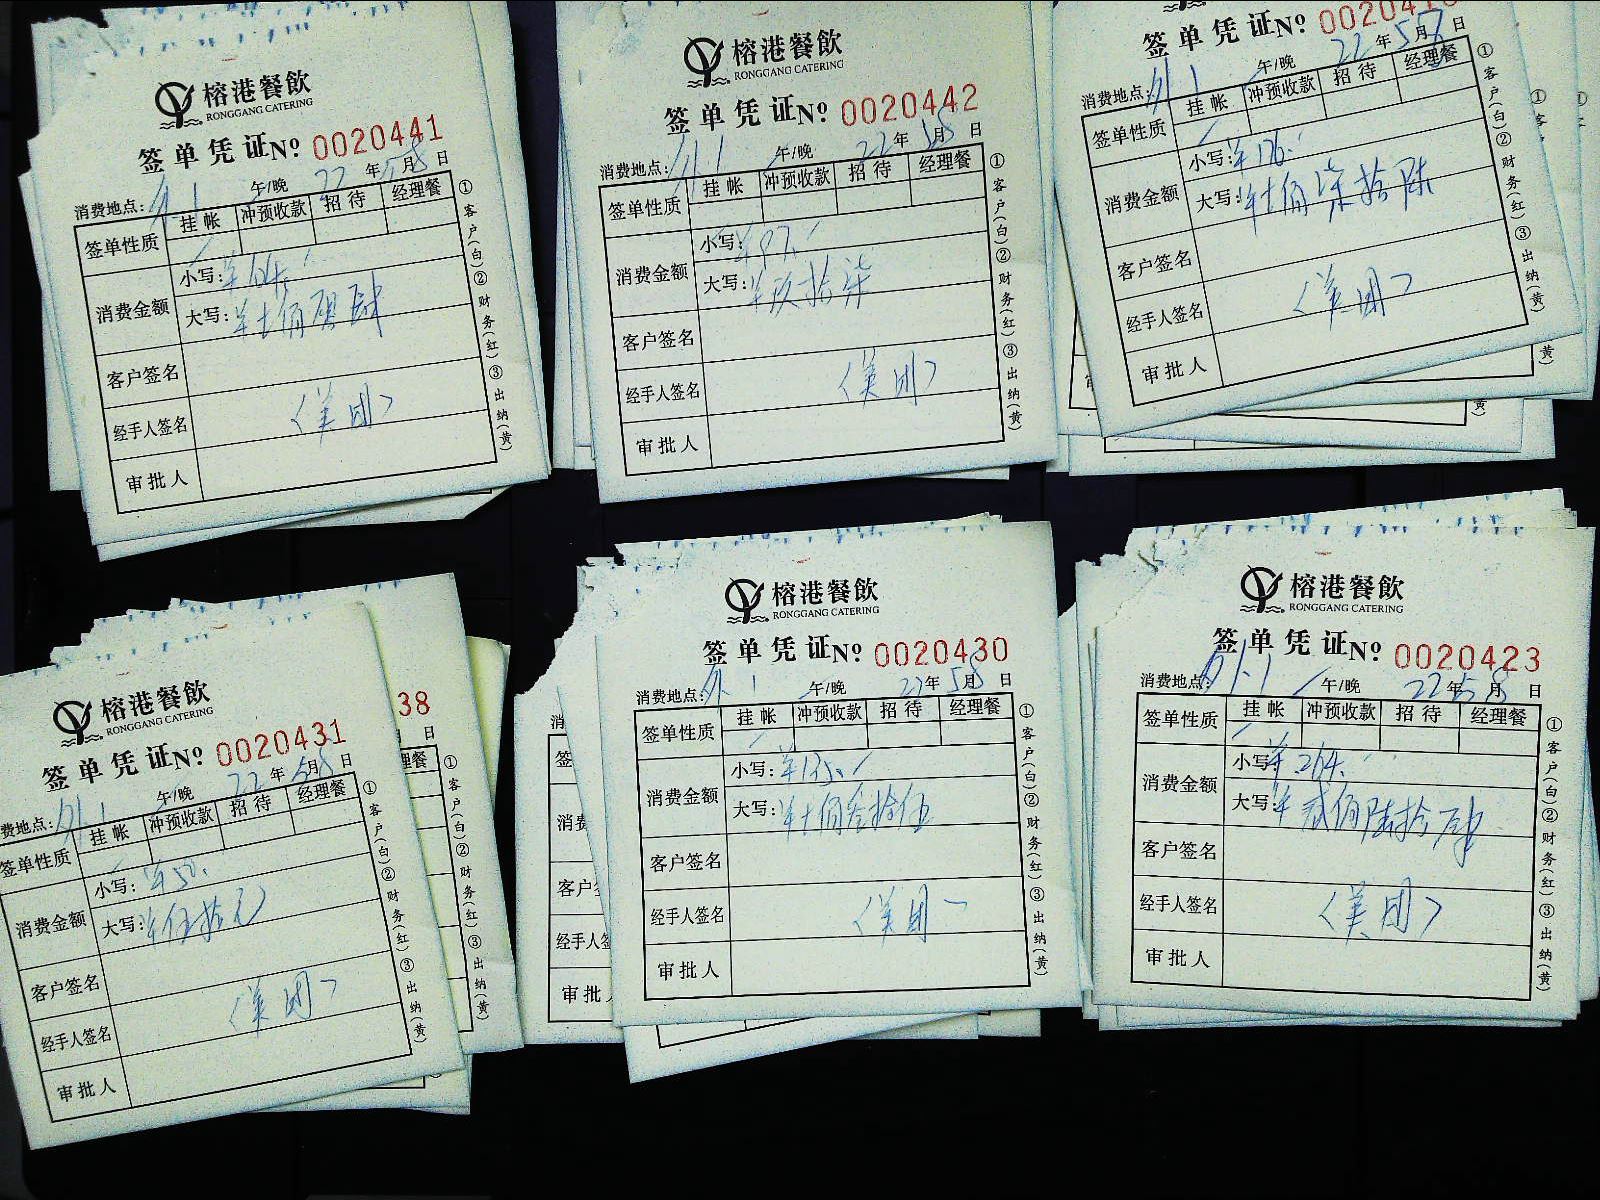 榕港餐飲
RONGGANG CATERING
签单凭证№ 0020441
消费地点: 外.1 午/晚 22年5月8日
签单性质 挂帐 冲预收款 招待 经理餐
消费金额
小写: ¥104.
大写: ¥壹佰零肆
客户签名
经手人签名 <美团>
审批人
①客户(白)②财务(红)③出纳(黄)
榕港餐飲
RONGGANG CATERING
签单凭证№ 0020442
消费地点: 外.1 午/晚 22年5月8日
签单性质 挂帐 冲预收款 招待 经理餐
消费金额
小写: ¥97.
大写: ¥玖拾柒
客户签名
经手人签名 <美团>
审批人
①客户(白)②财务(红)③出纳(黄)
签单凭证№
消费地点: 外.1 午/晚 22年5月8日
签单性质 挂帐 冲预收款 招待 经理餐
消费金额
小写: ¥176.
大写: ¥壹佰柒拾陆
客户签名
经手人签名 <美团>
审批人
①客户(白)②财务(红)③出纳(黄)
榕港餐飲
RONGGANG CATERING
签单凭证№ 0020431
费地点: 外.1 午/晚 22年5月8日
签单性质 挂帐 冲预收款 招待 经理餐
消费金额
小写: ¥50.
大写: ¥伍拾元
客户签名
经手人签名 <美团>
审批人
①客户(白)②财务(红)③出纳(黄)
38
日
理餐
①客户(白)②财务(红)③出纳(黄)
榕港餐飲
RONGGANG CATERING
签单凭证№ 0020430
消费地点: 外.1 午/晚 22年5月8日
签单性质 挂帐 冲预收款 招待 经理餐
消费金额
小写: ¥135.
大写: ¥壹佰叁拾伍
客户签名
经手人签名 <美团
审批人
①客户(白)②财务(红)③出纳(黄)
榕港餐飲
RONGGANG CATERING
签单凭证№ 0020423
消费地点: 外.1 午/晚 22年5月8日
签单性质 挂帐 冲预收款 招待 经理餐
消费金额
小写: ¥264.
大写: ¥贰佰陆拾肆
客户签名
经手人签名 <美团>
审批人
①客户(白)②财务(红)③出纳(黄)